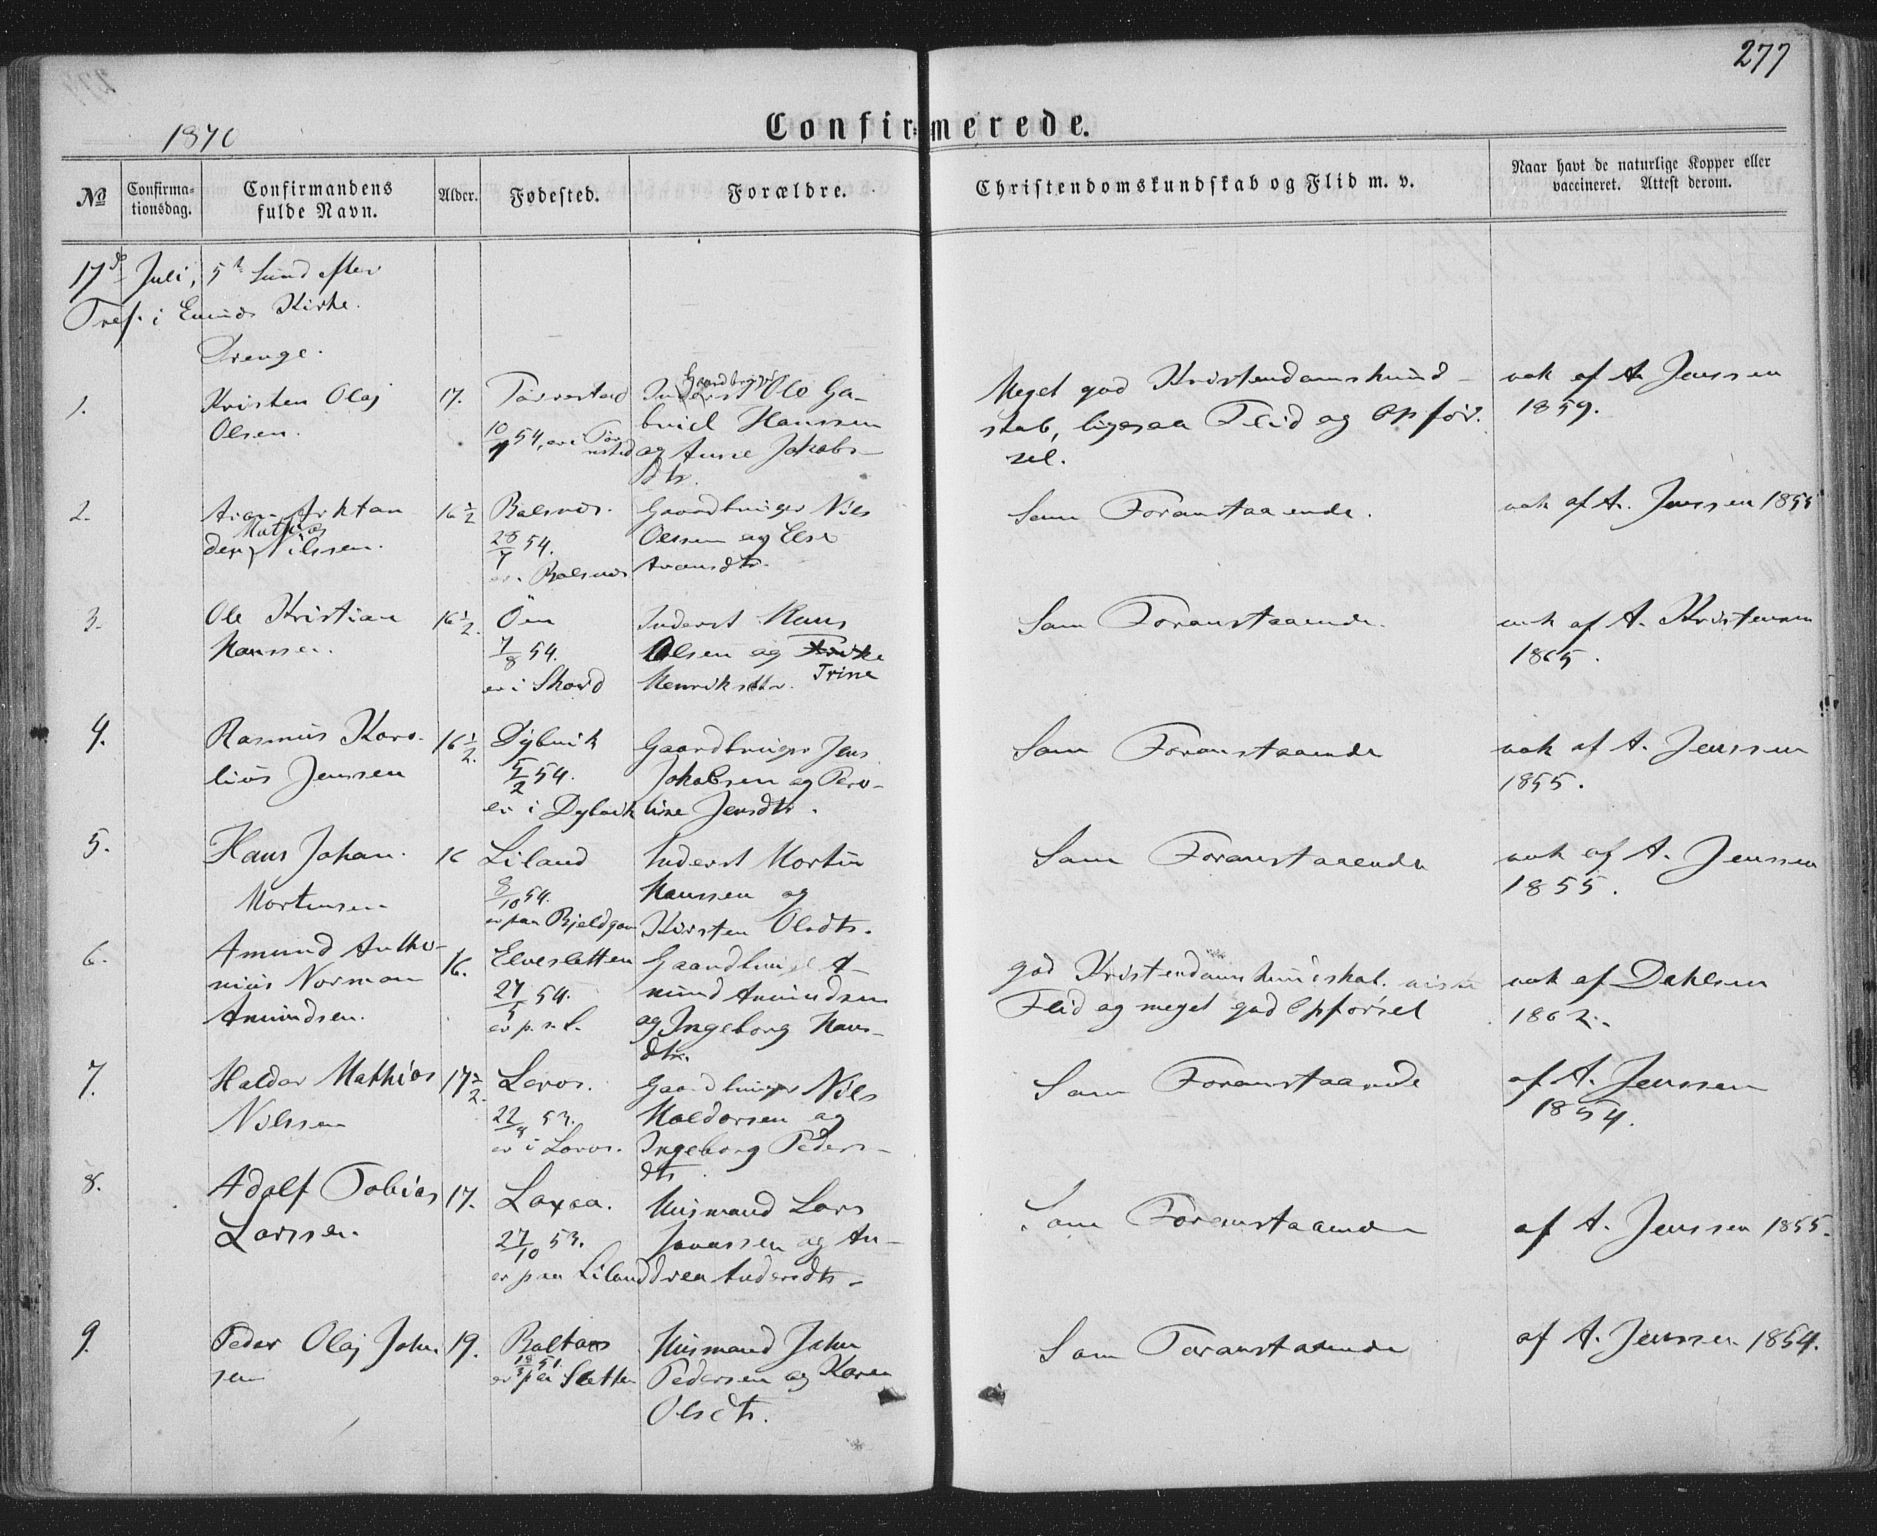 277
1870
Confirmerede.
No
Confirma-
tionsdag.
Confirmandens
fulde Navn.
Alder.
Fødested.
Forældre.
Christendomskundskab og Flid m. v.
Naar havt de naturlige Kopper eller
vaccineret. Attest derom.
17d Juli, 5t Sund efter
Tref. i Evinds Kirke.
Drenge.
1.
Kristen Olaj
Olsen.
17.
Taarrestad
10/ 54, er i
Gaardbruger
Inderst Ole Ga-
briel Hanssen
og Anne Jakobs-
dtr.
Meget god Kristendomskund-
skab, ligesaa Flid og Opfør-
sel.
vak af A. Jenssen
1859.
2.
Mathias
der Nilssen.
16 1/2
Balsnes.
28/7 54.
er i Balsnes
Gaardbruger Nils
Olssen og Else
Arontsdtr.
Som Foranstaaende.
vak af A. Jenssen 1855
3.
Ole Kristian
Hanssen.
16 1/2.
Öen
7/8 54.
er i
Inderst Hans
Olsen og
Henriksdtr. Trine
Som Foranstaaende.
vak af A. Kristensen
1865.
4.
Rasmus Karo-
lius Jenssen
16 1/2.
Dybvik
5/2 54.
er i Dybvik
Gaardbruger Jens
Jakobsen og Pero-
line Jensdtr.
Som Foranstaaende
vak af A. Jenssen
1855.
5.
Hans Johan
Mortensen
16
Liland
8/10 54.
er paa Bjeldgam
Inderst Mortin
Hanssen og
Kirsten Olsdtr.
Som Foranstaaende
vak af A. Jenssen
1855.
6.
Amund Antho-
nius Norman
Amundsen.
16.
Elvesletten
27/ 54.
er p. s. S.
Gaardbruger A-
mund Amundsen
og Ingeborg Hans-
dtr.
god Kristendomskundskab.
Flid og meget god Opførsel
vak af Dahlsen
1862.
7.
Haldor Mathias
Nilssen
17 1/2.
Lavos.
22/8 53.
er i Lavos.
Gaardbruger Nils
Haldorsen og
Ingeborg Peders-
dtr.
Som Foranstaaende
af A. Jenssen
1854.
8.
Adolf Tobias
Larssen.
17.
Laxaa.
27/10 53.
er paa Liland
Husmand Lars
Jonassen og An-
drea Andersdtr.
Som Foranstaaende
af A. Jenssen 1855.
9.
Peder Olaj John
sen
19.
18/3 51.
er paa Sletten
Husmand John
Pedersen og Karen
Olsdtr.
Som Foranstaaende
af A. Jenssen 1854.